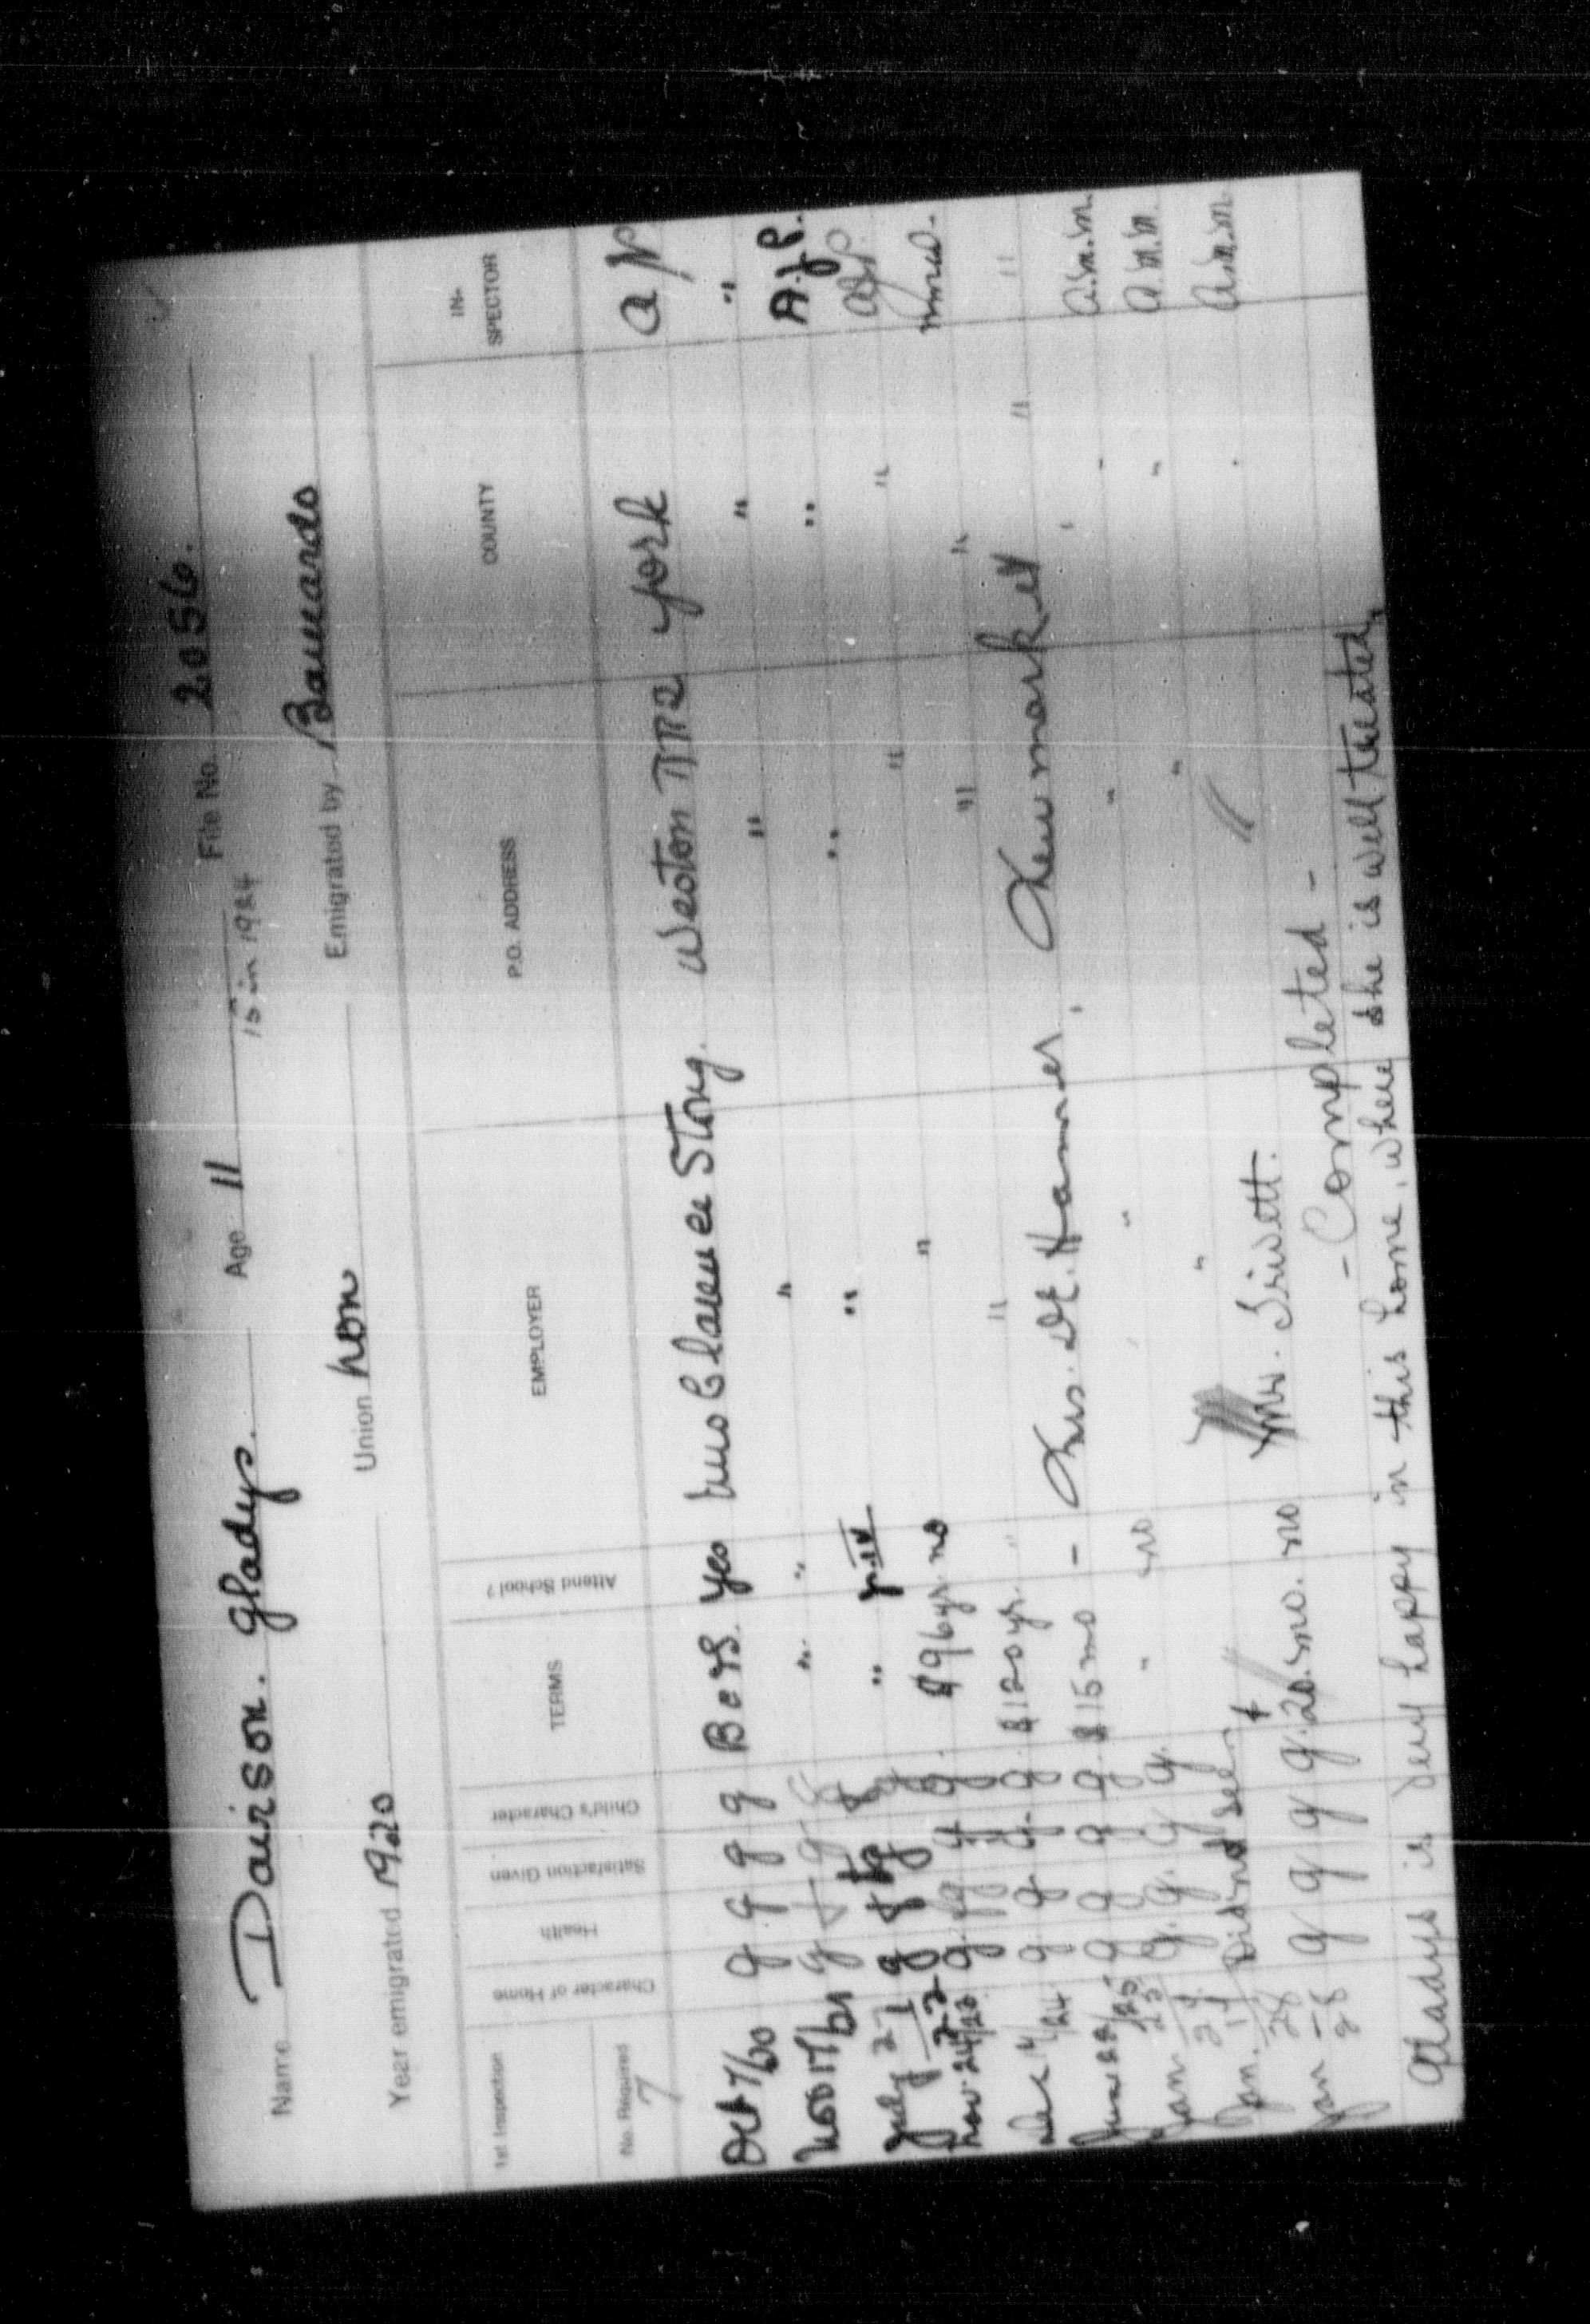 Name Davison. Gladys. Age 11 File No. 2056.
15 in 1924
Year emigrated 1920 Union non Emigrated by Barnardo
1st Inspection Character of Home Health Satisfaction Given Child's Character TERMS Attend School? EMPLOYER P.O. ADDRESS COUNTY IN-SPECTOR
No. Required
7
Oct 7/20 g g g g B & S. Yes Mrs Clarence Stong. Weston RR2 York
Nov 17/21 g g " " " " " "
July 27 22 g " " " " A.J.P.
Nov. 24/23 g. g g. $96 yr. no " " "
Dec 4/24 g g g. g. $120 yr. " " " "
June 22/25 g g g g. $15 mo - Mrs. Hamer, Newmarket " a.m.m.
Jan 25 27 g. g. g g. " no " " " a.m.m.
Jan. 17 28 Did not see " " " a.m.m
Jan - 28 g g g g. 20. mo. no Mrs. Trivett. "
- Completed -
Gladys is very happy in this home, where she is well treated,